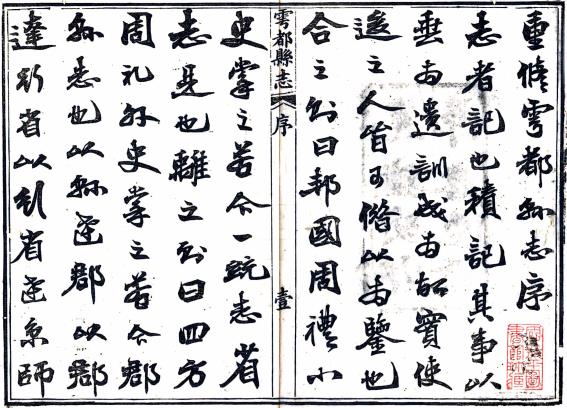 重脩雩都縣志序
志者記也積記其事以
垂為遺訓或為故實使
後之人皆可階以為鑒也
合之則曰邦國周禮小
雩都縣志
序
壹
史掌之若今一統志省
志是也離之則曰四方
周礼外史掌之若今郡
縣志也以縣達郡以郡
達於省以於省達京師